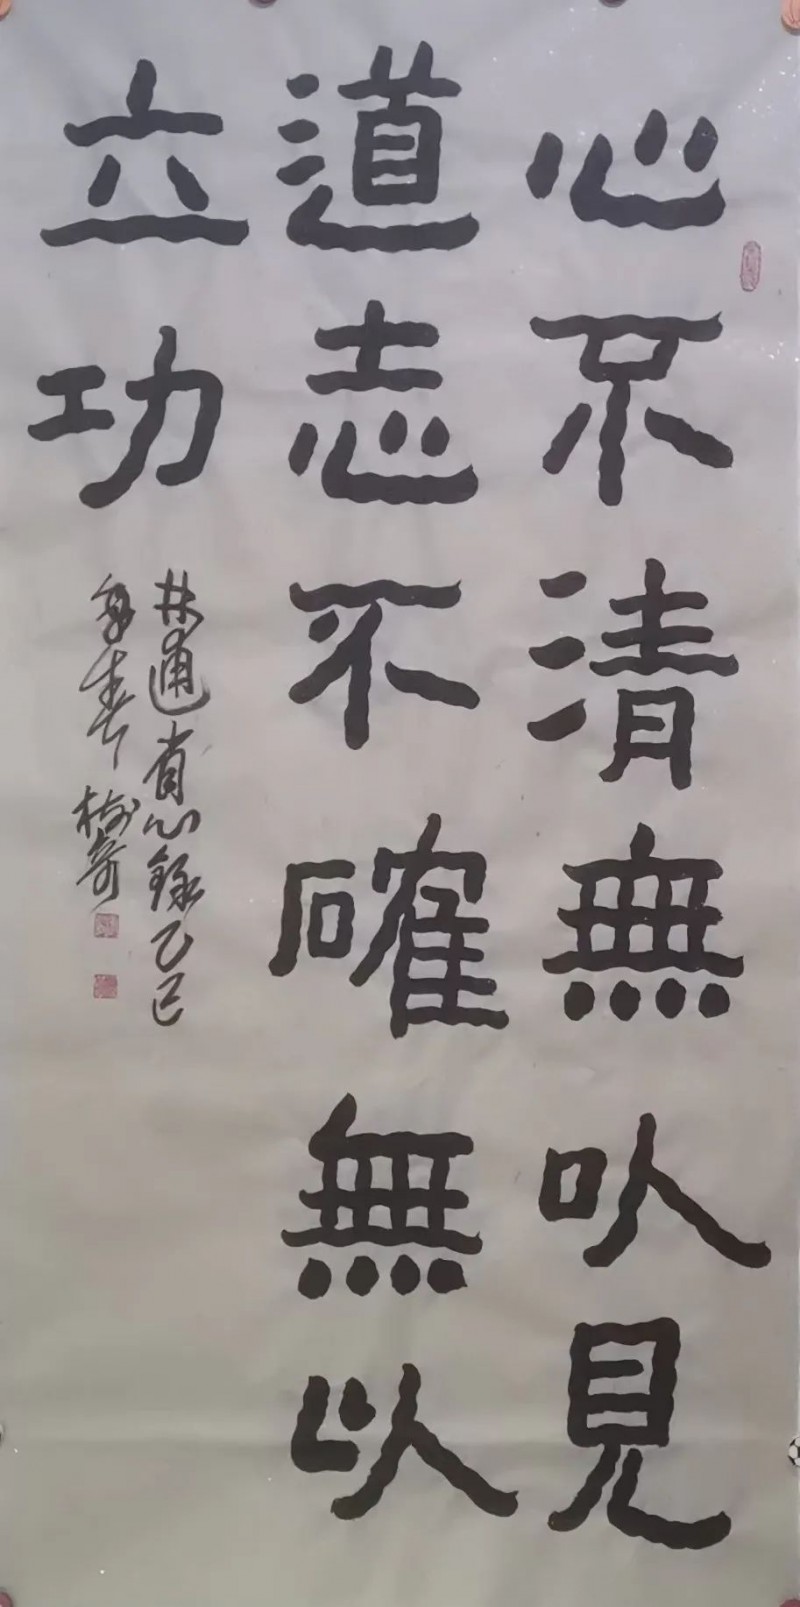 心不清無以見
道志不確無以
立功
林逋省心錄乙巳
年春 樹奇